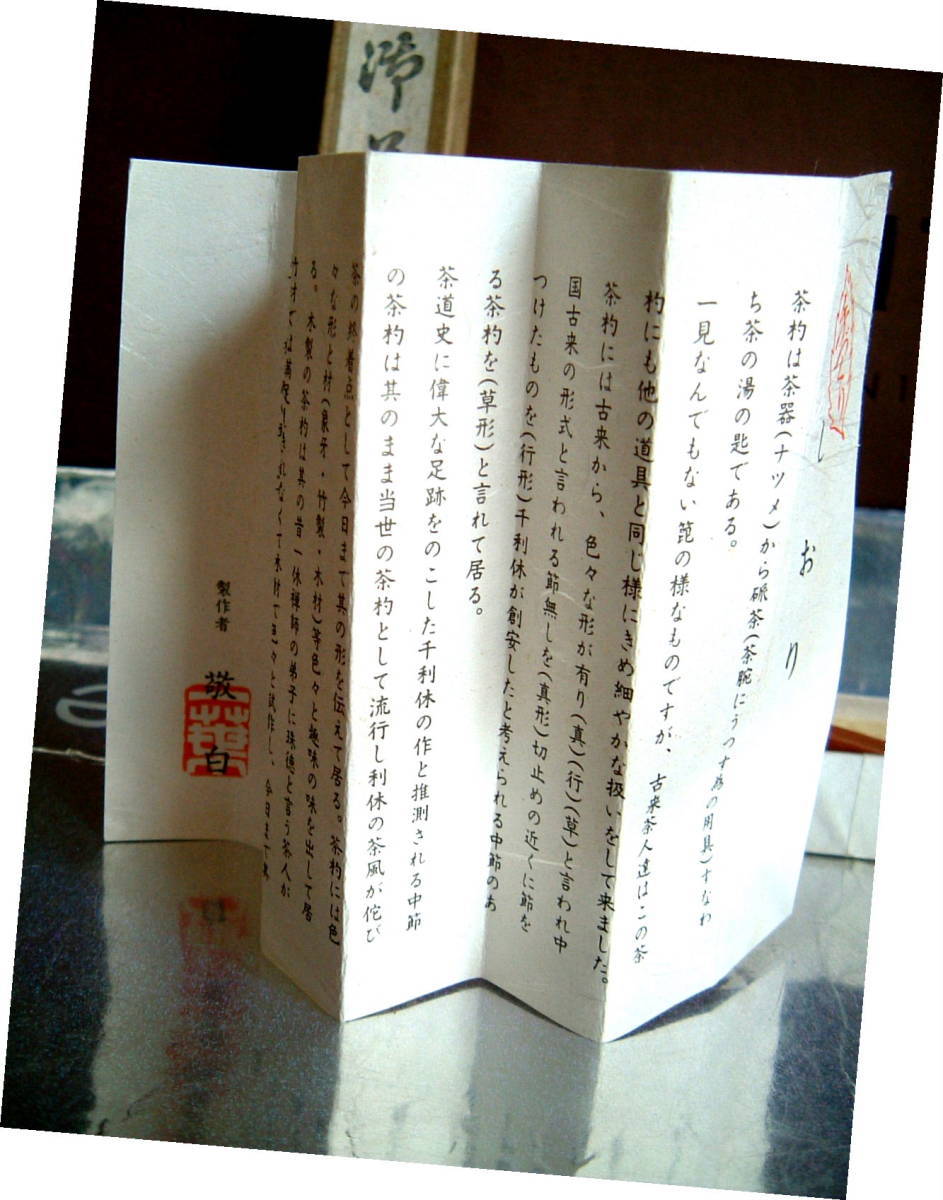 しおり
茶杓は茶器(ナツメ)から碾茶(茶腕にうつす為の用具)すなわ
ち茶の湯の匙である。
一見なんでもない箆の様なものですが、古来茶人達はこの茶
杓にも他の道具と同じ様にきめ細やかな扱いをして来ました。
茶杓には古来から、色々な形が有り(真)(行)(草)と言われ中
国古来の形式と言われる節無しを(真形)切止めの近くに節を
つけたものを(行形)千利休が創安したと考えられる中節のあ
る茶杓を(草形)と言れて居る。
茶道史に偉大な足跡をのこした千利休の作と推測される中節
の茶杓は其のまま当世の茶杓として流行し利休の茶風が佗び
茶の終着点として今日まで其の形を伝えて居る。茶杓には色
々な形と材(象牙・竹製・木材)等色々と趣味の味を出して居
る。木製の茶杓は其の昔一休禅師の弟子に珠徳と言う茶人が
竹材では満足りなくて木材で色々と試作し、今日まで
製作者
敬白